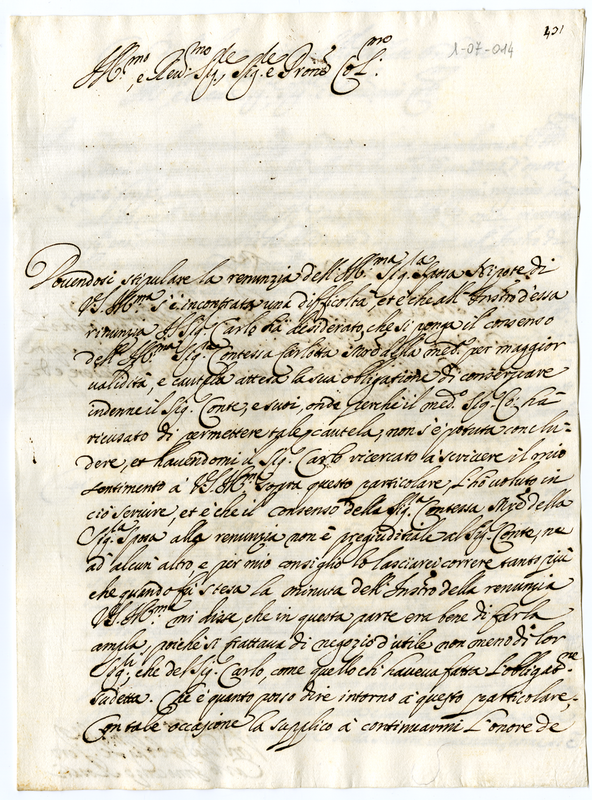 401
1-07-014
Ill.mo e Rev.mo Sig.re, Sig.re e Pron.e Col.mo
Dovendosi stipulare la renunzia dell'Ill.ma Sig.la Nipote di
V.S. Ill.ma s'è incontrata una difficoltà, et è che all'Instro d'essa
rinunzia il Sig. Carlo hà desiderato, che si ponga il consenso
dell'Ill.ma Sig.ra Contessa Carlotta Mrẽ della med.a per maggior
validità, e cautela attesa la sua obligazione di conservare
indenne il Sig. Conte, e suoi, onde perche il med.o Sig. Co. hà
ricusato di permettere tale cautela, non s'è potuta conclu-
dere, et havendomi il Sig. Carlo ricercato à scrivere il mio
sentimento à V.S. Ill.ma sopra questo particolare l'hò voluto in
ciò servire, et è che il consenso della Sig.ra Contessa Mrẽ della
Sig.la Sposa alla renunzia non è pregiuditiale al Sig. Conte, ne
ad alcun altro, e per mio consiglio lo lasciarei correre tanto più
che quando fù stesa la minuta dell'Instro della renunzia
V.S. Ill.ma mi disse, che in questa parte era bene di farla
ampla, poiche si trattava di negozio d'utile non meno di lor
Sig.ri, che del Sig. Carlo, come quello che haveva fatta l'obligat.ne
sudetta. Che è quanto posso dire intorno à questo particolare,
Con tale occasione la supplico à continuarmi l'onore de